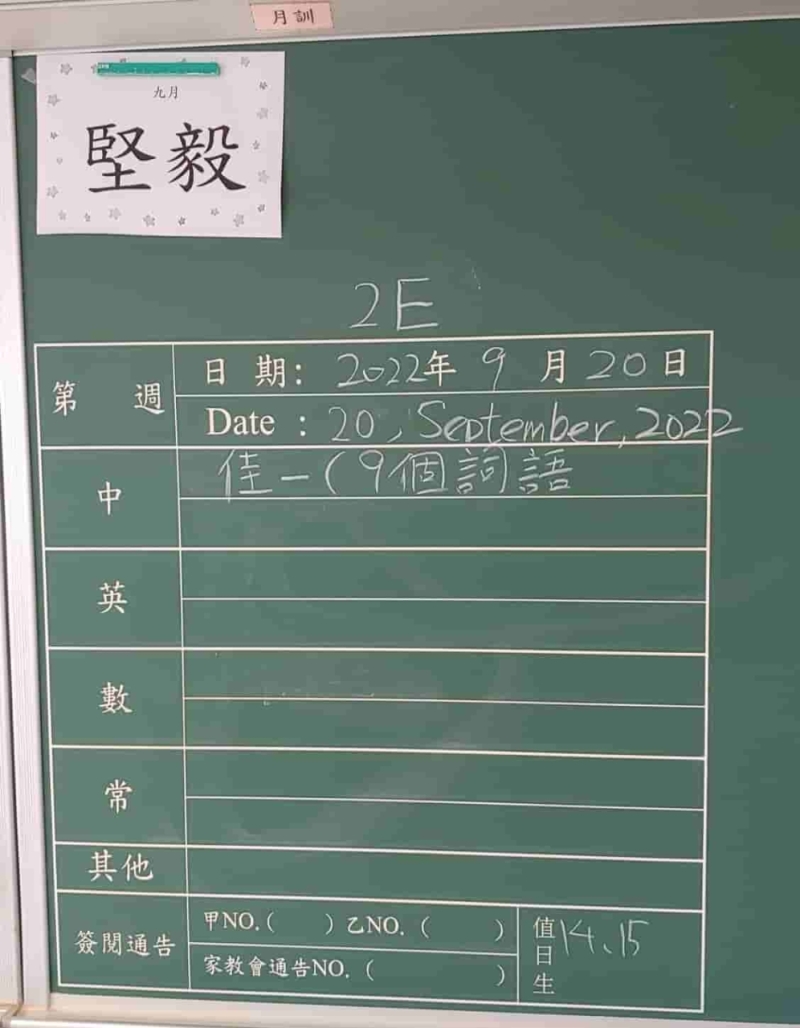 月訓
九月
堅毅
2E
第　週
日 期: 2022年 9 月 20 日
Date : 20, September, 2022
中
佳一(9個詞語
英
數
常
其他
簽閱通告
甲NO.(　　) 乙NO.(　　)
家教會通告NO.(　　)
值日生 14、15